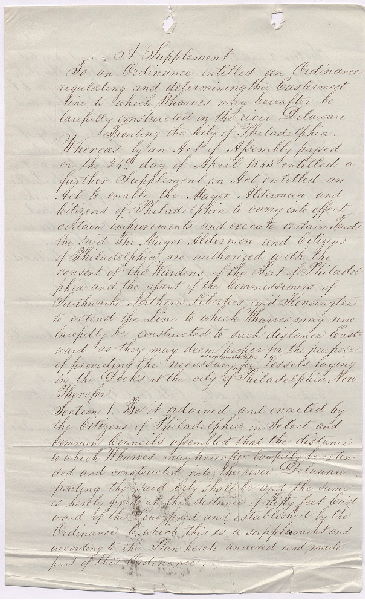 A Supplement
To an Ordinance entitled an Ordinance
regulating and determining the Easternmost
line to which Wharves may hereafter be
lawfully constructed in the river Delaware
fronting the City of Philadelphia.
Whereas by an Act of Assembly passed
on the 24th day of April entitled a
further Supplement an Act entitled an
Act to enable the Mayor Aldermen and
citizens of Philadelphia to carry into effect
certain improvements and execute certain Trusts
the said The Mayor Aldermen and Citizens
of Philadelphia are authorized with the
consent of the Wardens of the Port of Philadel
phia and the assent of the Commissioners of
Southwark Northern Liberties and Kensington
to extend the line to which Wharves may now
lawfully be constructed to such distance East
ward as they may deem proper for the purpose
of for Vessels laying
in the Docks at the city of Philadelphia Now
Therefor
Section 1. Be it ordained and enacted by
the Citizens of Philadelphia in Select and
Common Councils assembled that the distance
to which Wharves may hereafter lawfully be exten
ded and constructed into the river Delaware
fronting the said City shall be and the same
is hereby at the distance of feet East
ward of the line fixed and established by the
Ordinance to which this is a supplement and
according to the Plan hereto annexed and made
part of this Ordinance.